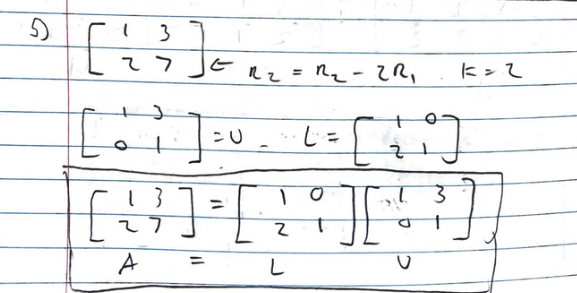 5) [ 1 3
2 7 ] ← R2 = R2 - 2R1 . K = 2
[ 1 3
0 1 ] = U . L = [ 1 0
2 1 ]
[ 1 3
2 7 ] = [ 1 0
2 1 ] [ 1 3
0 1 ]
A = L U